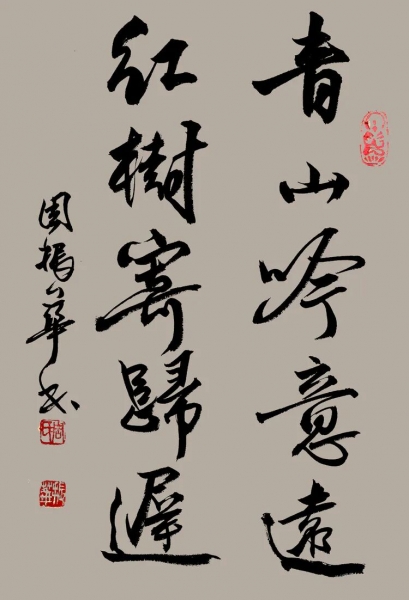 青山吟意遠
紅樹寄歸遲
周振華书